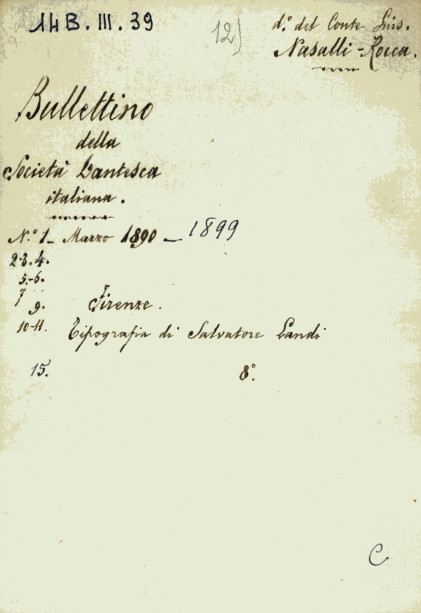 14B.III.39
12)
d.º del Conte Luis.
Nasalli-Rocca.
Bullettino
della
Società Dantesca
italiana.
N.º 1 - Marzo 1890 - 1899
2.3.4.
5.-6.
7
9.
Firenze.
10-11.
Tipografia di Salvatore Landi
15.
8º.
C